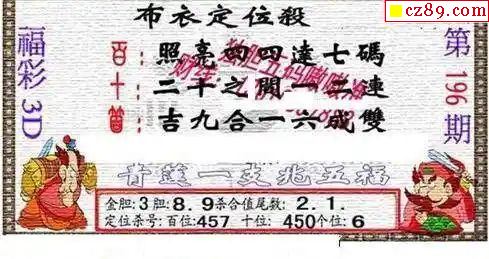 cz89.com
布衣定位殺
福彩3D
第196期
百: 照亮四四達七碼
十: 二十之開一二連
個: 吉九合一六成雙
一支兆五福
金胆:3胆:8.9杀合值尾数:2.1.
定位杀号:百位:457十位:450个位:6